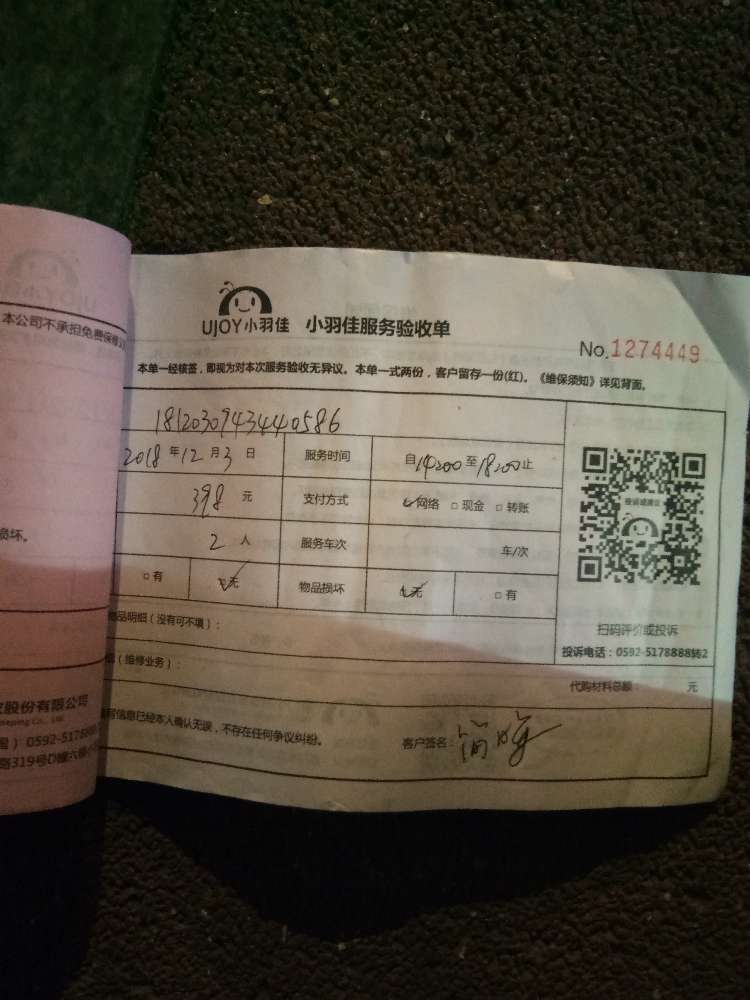 本公司不承担免费保修
损坏。
股份有限公司
0592-51788
路319号D幢六楼
UJOY小羽佳 小羽佳服务验收单
No.1274449
本单一经核签，即视为对本次服务验收无异议。本单一式两份，客户留存一份(红)。《维保须知》详见背面。
1812030943440586
2018年12月3日 服务时间 自14:00至18:00止
398元 支付方式 ☑网络 □现金 □转账
2人 服务车次 车/次
□有 ☑无 物品损坏 ☑无 □有
投诉或建议
扫码评价或投诉
投诉电话：0592-5178888转2
物品明细（没有可不填）：
（维修业务）：
代购材料总额： 元
写信息已经本人确认无误，不存在任何争议纠纷。 客户签名：